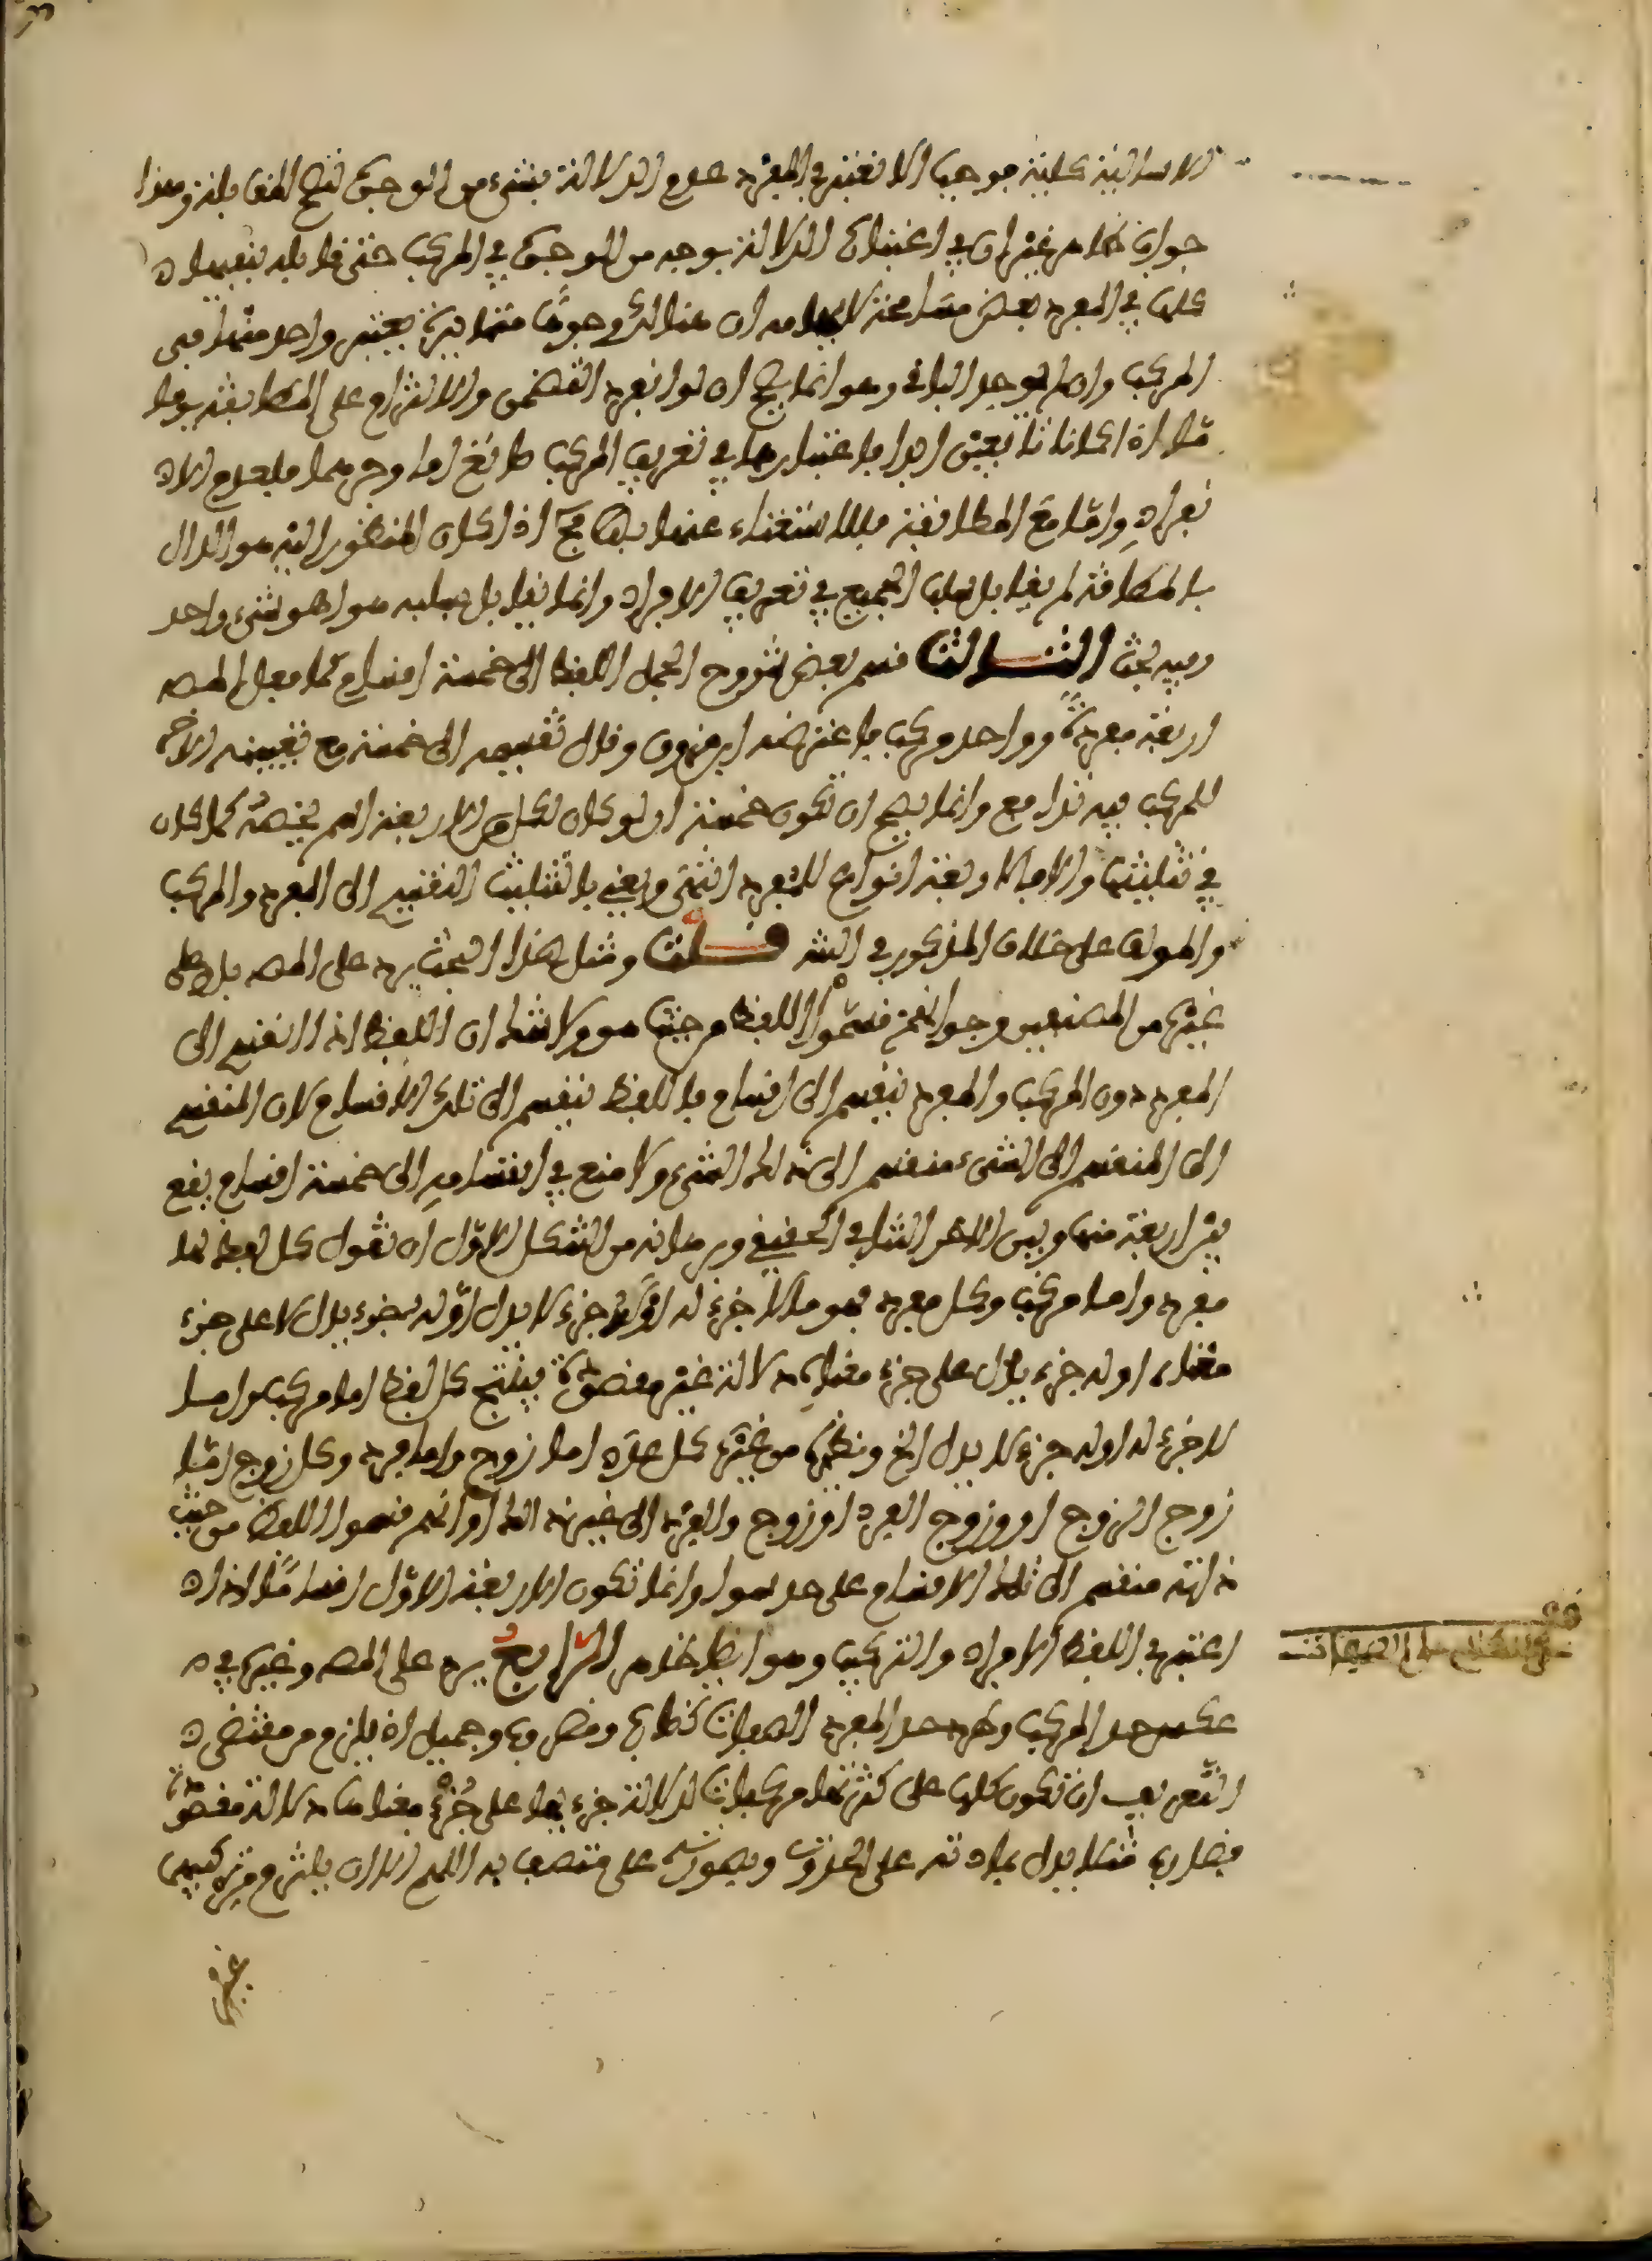 الا سالبة كلية فوجب ان تعتبر في المفرد عدم الدلالة بشيء من الوجوه لتصح المقابلة وهذا
جواب ظاهر غير ان في اعتبار الدلالة بوجه من الوجوه في المركب حتى قابله بنفيها
كلها في المفرد بعض مسامحة لايهامه ان هنالك وجوها متمايزة يعتبر واحد منها في
المركب وان لم يوجد الباقي وهو انما يصح ان لو انفرد التضمن والالتزام على المطابقة يوما
ما اذ كانا تابعين ابدا فاعتبارهما في تعريف المركب ضائع اما وحدهما فلعدم الا
نفراد واما مع المطابقة فللاستغناء عنهما بها مع اذ كان المنظور اليه هو الدال
بالمطابقة لم يقابل سلب الجميع في تعريف الافراد وانما يقابل بسلبه هو اذ هو شيء واحد
وفيه بحث الثالث قسم بعض شروح الجمل اللفظ الى خمسة اقسام كما فعل المص
اربعة مفردة وواحد مركب فاعترضه ابن مرزوق وقال تقسيمه الى خمسة مع تعيينه الاخير
للمركب فيه تدافع وانما يصح ان تكون خمسة ان لو كان لكل من الاربعة اسم يخصه كما كان
في تثليثها والا فالاربعة انواع للمفرد انتهى ويعني بالتثليث التقسيم الى المفرد والمركب
والمؤلف على خلاف المذكور في الشر قلت ومثل هذا البحث يرد على المص بل وعلى
غيره من المصنفين وجوابه انهم قسموا اللفظ من حيث هو ولا شك ان اللفظ اذا انقسم الى
المفرد دون المركب والمفرد ينقسم الى اقسام فاللفظ ينقسم الى تلك الاقسام لان المنقسم
الى المنقسم الى الشيء منقسم الى ذلك الشيء ولا منع في انقسامه الى خمسة اقسام يقع
بين اربعة منها وبين الاخر التنافي الحقيقي وبرهانه من الشكل الاول ان تقول كل لفظ اما
مفرد واما مركب وكل مفرد فهو ما لا جزء له او له جزء لا يدل او له جزء يدل لا على جزء
معناه او له جزء يدل على جزء معناه دلالة غير مقصودة فينتج كل لفظ اما مركب واما
لا جزء له او له جزء لا يدل الخ ونظيره من غيره كل عدد اما زوج واما فرد وكل زوج اما
زوج الزوج او زوج الفرد او زوج والفرد الى غير ذلك او انهم قسموا اللفظ من حيث
ذاته منقسم الى تلك الاقسام على حد سوا وانما تكون الاربعة الاول اقساما اذا
اعتبر في اللفظ الافراد والتركيب وهو ايضا ظاهر الرابع يرد على المص وغيره في
عكس حد المركب وطرد حد المفرد الصفات كضارب ومضروب وجميل اذ يلزم من مقتضى
التعريف ان تكون كلها على كثرتها مركبات لدلالة جزءيها على جزء معناها دلالة مقصودة
فضارب مثلا يدل بمادته على الحدث وبصورته على متصف به اللهم الا ان يلتزم تركيبها
غير